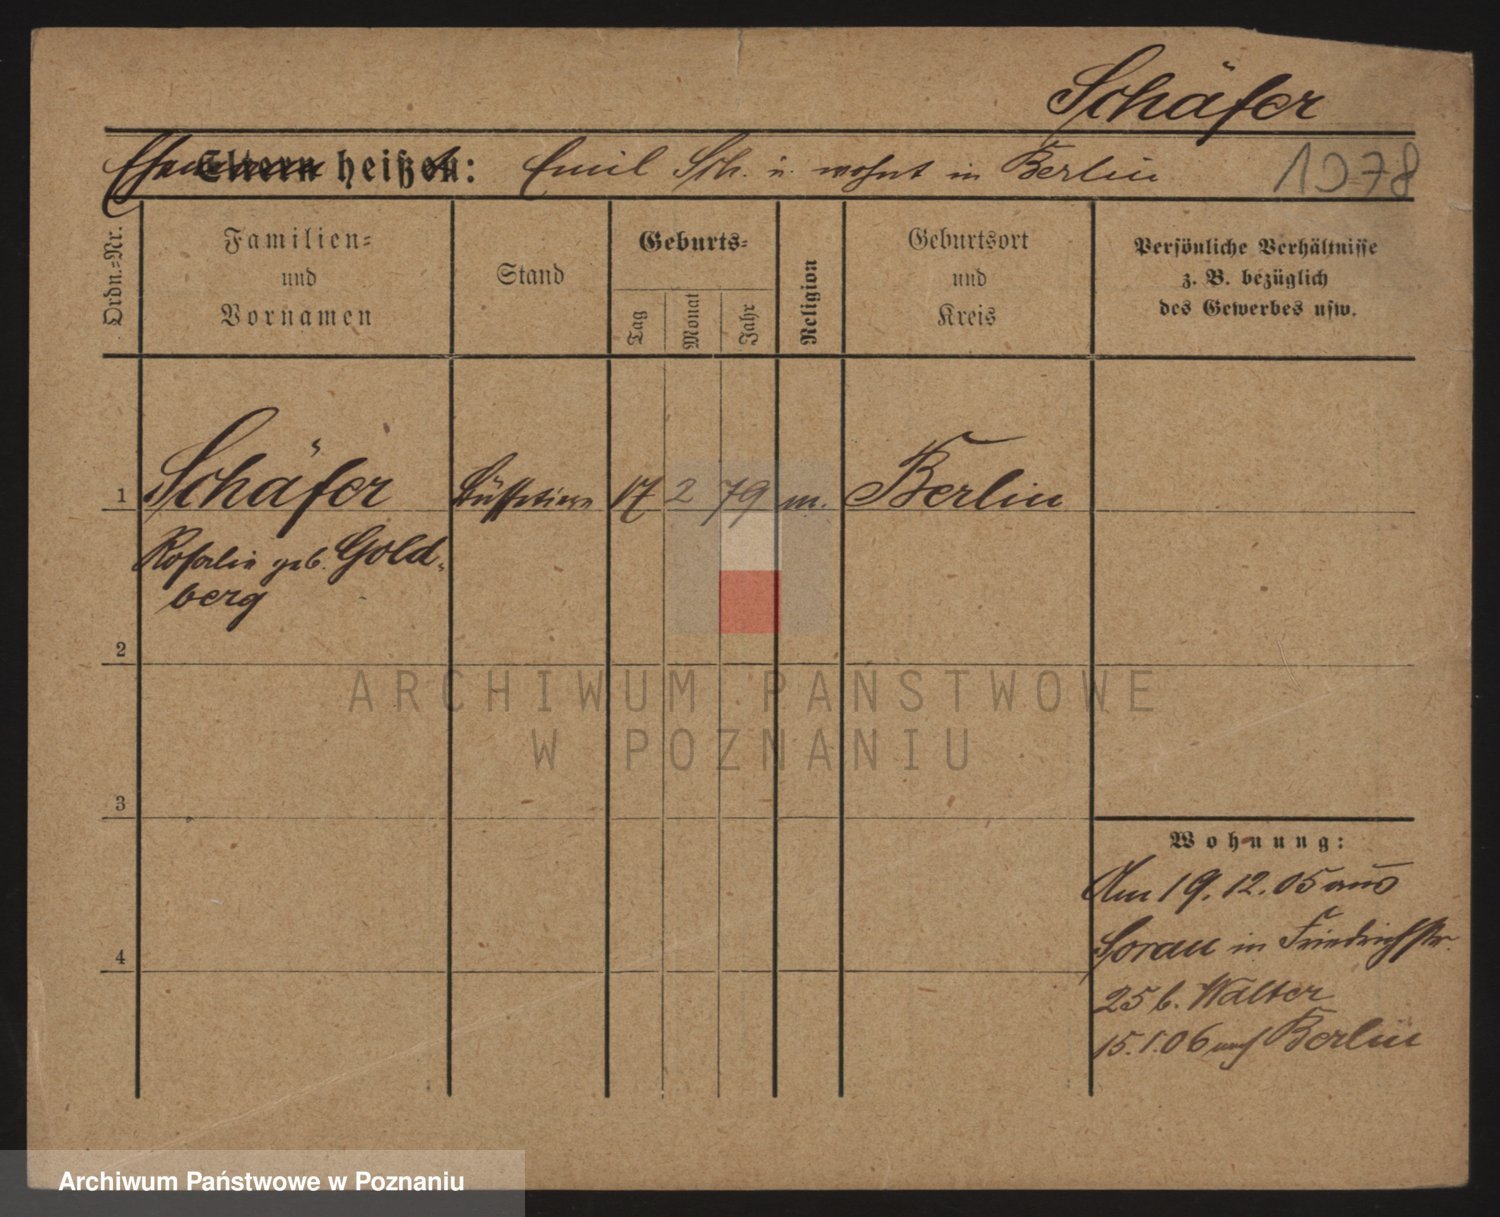 Schäfer
Ehemann heißt: Emil Sch. u. wohnt in Berlin 1978
Ordn.-Nr.
Familien-
und
Vornamen
Stand
Geburts-
Tag
Monat
Jahr
Religion
Geburtsort
und
Kreis
Persönliche Verhältnisse
z. B. bezüglich
des Gewerbes usw.
1 Schäfer 17 2 79 m. Berlin
Rosalie geb. Gold-
berg
2
ARCHIWUM PAŃSTWOWE
W POZNANIU
3
Wohnung:
Am 19. 12. 05 aus
Sorau in Friedrichstr.
4
25 b. Walter
15. 1. 06 nach Berlin
Archiwum Państwowe w Poznaniu